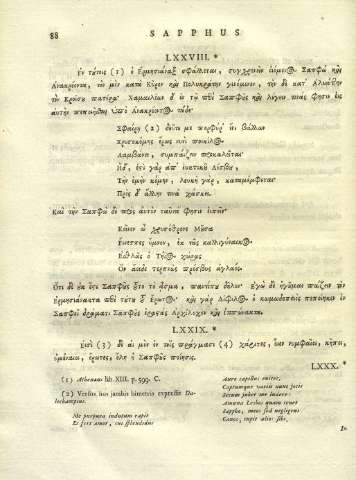 88 SAPPHUS.
LXXVIII. *
Ἐν τούτοις (1) ὁ Ἑρμησιάναξ σφάλλεται, συγχρονεῖν οἰόμενος Σαπφὼ καὶ
Ἀνακρέοντα, τὸν μὲν κατὰ Κῦρον καὶ Πολυκράτην γενόμενον, τὴν δὲ κατ' Ἀλυάττην
τὸν Κροίσου πατέρα. Χαμαιλέων δ' ἐν τῷ περὶ Σαπφοῦς καὶ λέγειν τινάς φησιν εἰς
αὐτὴν πεποιῆσθαι ὑπὸ Ἀνακρέοντος τάδε·
Σφαίρῃ (2) δεῦτέ με πορφυρέῃ βάλλων
Χρυσοκόμης ἔρως
Λαμβάνῳ, συμπαίζειν προκαλεῖται·
Ἡ δ', ἐστὶ γὰρ ἀπ' εὐκτικοῦ Λέσβου,
Τὴν ἐμὴν κόμην, λευκὴ γὰρ, καταμέμφεται·
Πρὸς δ' ἄλλην τινὰ χάσκει.
Καὶ τὴν Σαπφὼ δὲ πρὸς αὐτὸν ταῦτά φησιν εἰπεῖν·
Κεῖνον ὦ χρυσόθρονε Μοῦσα
Ἔνισπες ὕμνον, ἐκ τᾶς καλλιγύναικος
Ἐσθλᾶς ὁ Τήϊος χώρας
Ὃν ἄειδε τερπνῶς πρέσβυς ἀγλαός.
Ὅτι δὲ οὐκ ἔστι Σαπφοῦς τοῦτο τὸ ᾆσμα, παντί που δῆλον· ἐγὼ δὲ ἡγοῦμαι παίζειν τὸν
Ἑρμησιάνακτα περὶ τούτου τοῦ ἔρωτος· καὶ γὰρ Δίφιλος ὁ κωμῳδιοποιὸς πεποίηκεν ἐν
Σαπφοῖ δράματι Σαπφοῦς ἐραστὰς Ἀρχίλοχον καὶ Ἱππώνακτα.
LXXIX. *
Εἰσὶ (3) δὲ αἱ μὲν ἐν τοῖς πράγμασι (4) χάριτες, οἷον νυμφαῖοι, κῆποι,
ὑμέναιοι, ἔρωτες, ὅλη ἡ Σαπφοῦς ποίησις.
LXXX. *
(1) Athenaeus lib. XIII. p. 599. C.
(2) Versus hos jambis bimetris expressit Da-
lechampius.
Me purpura indutum rapit
Et ferit amor, cui splendidus
Auro capillus nitet,
Captumque variis nunc jocis
Secum jubet me ludere:
Amœna Lesbus quam tenet
Sappho, meos sed negligens
Canos, cupit alios sibi,
In